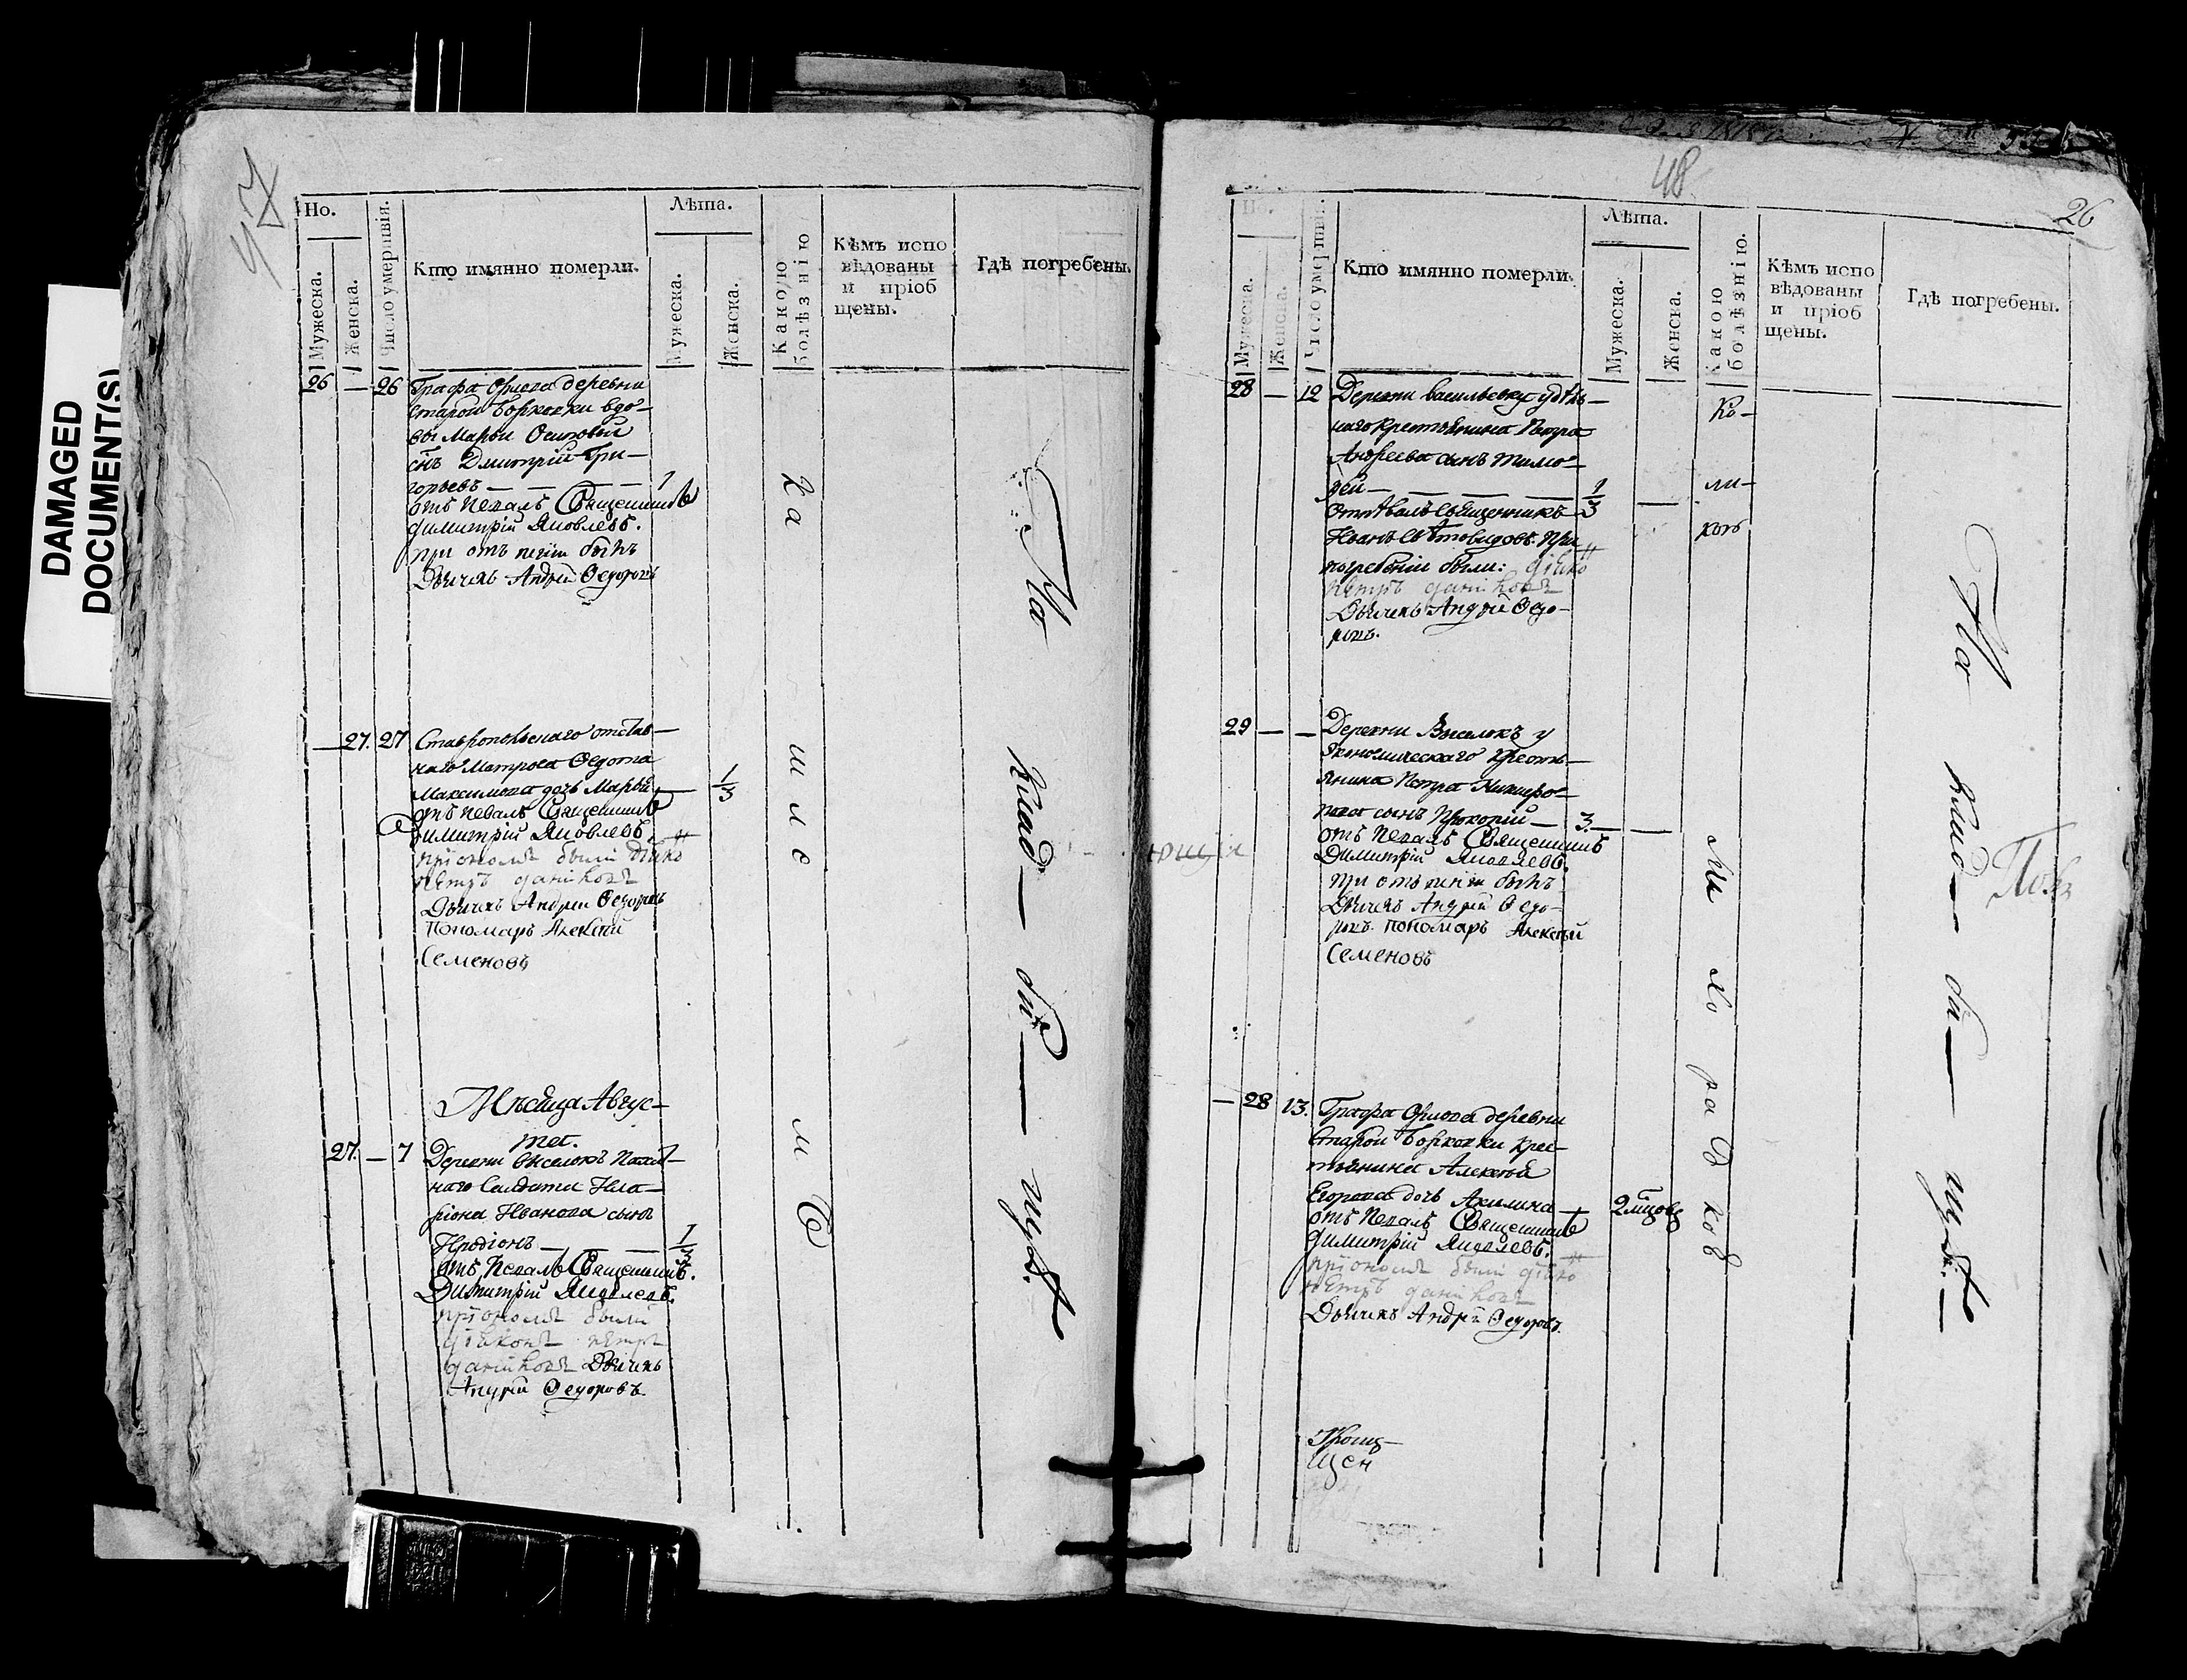 DAMAGED
DOCUMENT(S)
47
Но.
Мужеска.
Женска.
Число умертвія.
Кто имянно померли.
Лѣта.
Мужеска.
Женска.
Какою
болѣзнію
Кѣмъ испо
вѣдованы
и пріоб
щены.
Гдѣ погребены.
26 — 26 Графа Орлова деревни
Старой Борковки вдо-
вы Марьи Осиповой
снъ Дмитрій Гри-
горьевъ — — — — 1
отъ певалъ Священникъ
Димитрій Яковлевъ.
при отъ пеніи былъ
Дьячекъ Андрей Ѳедоровъ
— 27. 27 Ставропольскаго отстав-
наго Матроса Ѳедота
Максимова дочь Марья — 1/3
отъ певалъ Священникъ
Димитрій Яковлевъ.
пріономъ были діако
петръ
Дьячекъ Андрей Ѳедоровъ
Пономарь Алексѣй
Семеновъ
Мѣсяца Авгус-
та.
27. — 7 Деревни Выселокъ
наго Салдата Ила-
ріона Иванова сынъ
Иродіонъ — — — 1/3
отъ певалъ Священникъ.
Димитрій Яковлевъ.
пріономъ были
діаконъ петръ
Дьячекъ
Андрей Ѳедоровъ.
Ка
ш
л
е
м
ъ
На клад — би — щѣ.
48
26
Но.
Мужеска.
Женска.
Число умертвія.
Кто имянно померли.
Лѣта.
Мужеска.
Женска.
Какою
болѣзнію.
Кѣмъ испо
вѣдованы
и пріоб
щены.
Гдѣ погребены.
28 — 12 Деревни Васильевки удѣль-
наго крестьянина Петра
Андреева сынъ Тимо-
ѳей — — — — 1/3 —
Отпѣвалъ Священникъ
Иванъ Свѣтовидовъ. При
погребеніи были: діако
петръ
Дьячекъ Андрей Ѳедо-
ровъ.
Ко-
ли-
кою
29 — — Деревни Выселокъ
Экономическаго крестья-
янина Петра Никифо-
рова сынъ Прокопій — 3. — —
отъ певалъ Священникъ
Димитрій Яковлевъ.
при отъ пеніи былъ
Дьячекъ Андрей Ѳедо-
ровъ. Пономарь Алексѣй
Семеновъ
— 28 13. Графа Орлова деревни
Старой Борковки крес-
тьянина Алексѣя
Егорова дочь Акилина — 2 мцовъ
отъ певалъ Священникъ
Димитрій Яковлевъ.
пріономъ были діако
петръ
Дьячекъ Андрей Ѳедоровъ.
Ли
хо
ра
д
кой
На клад — би — щѣ. —